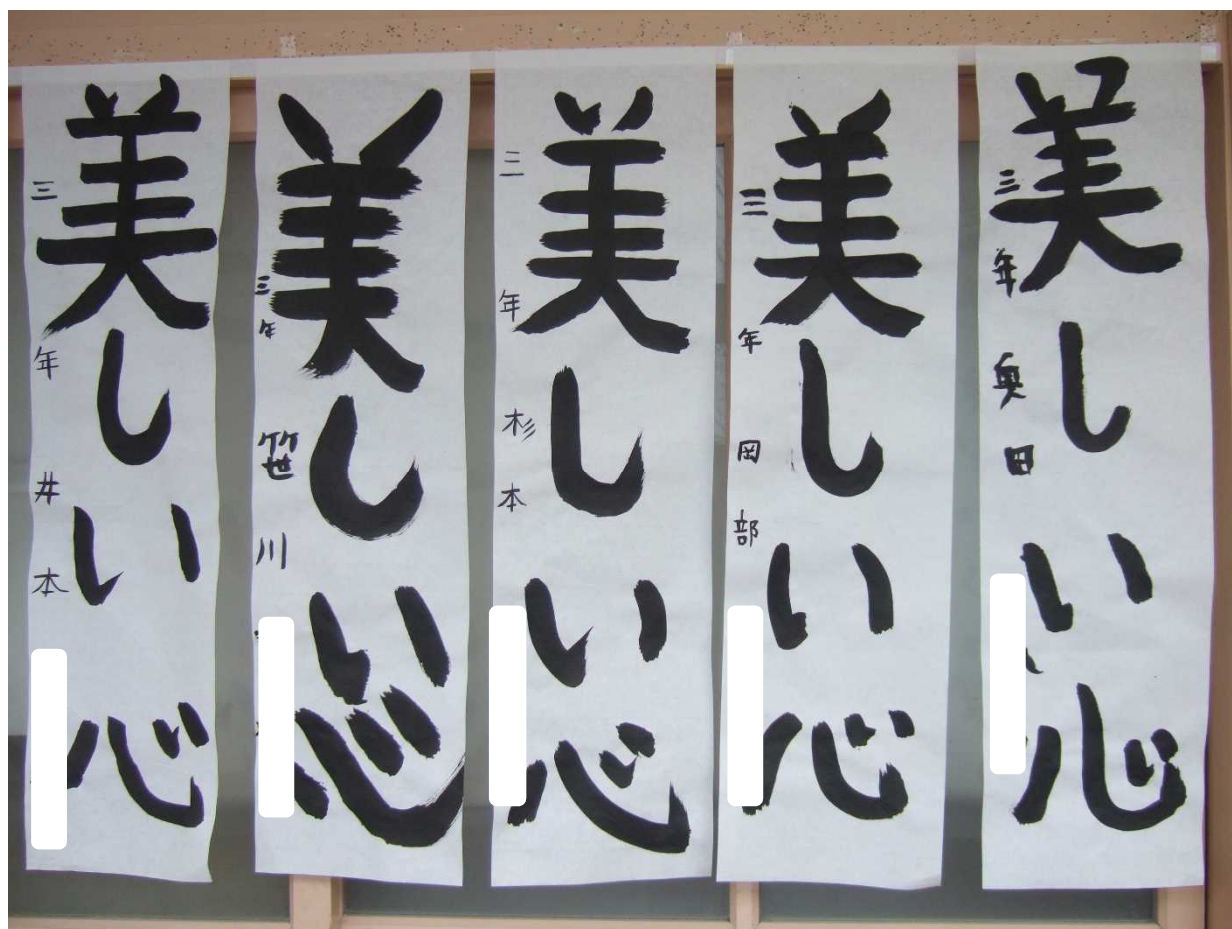 美しい心
三年 奥田
美しい心
三年 岡部
美しい心
二年 杉本
美しい心
三年 笹川
美しい心
三年 井本